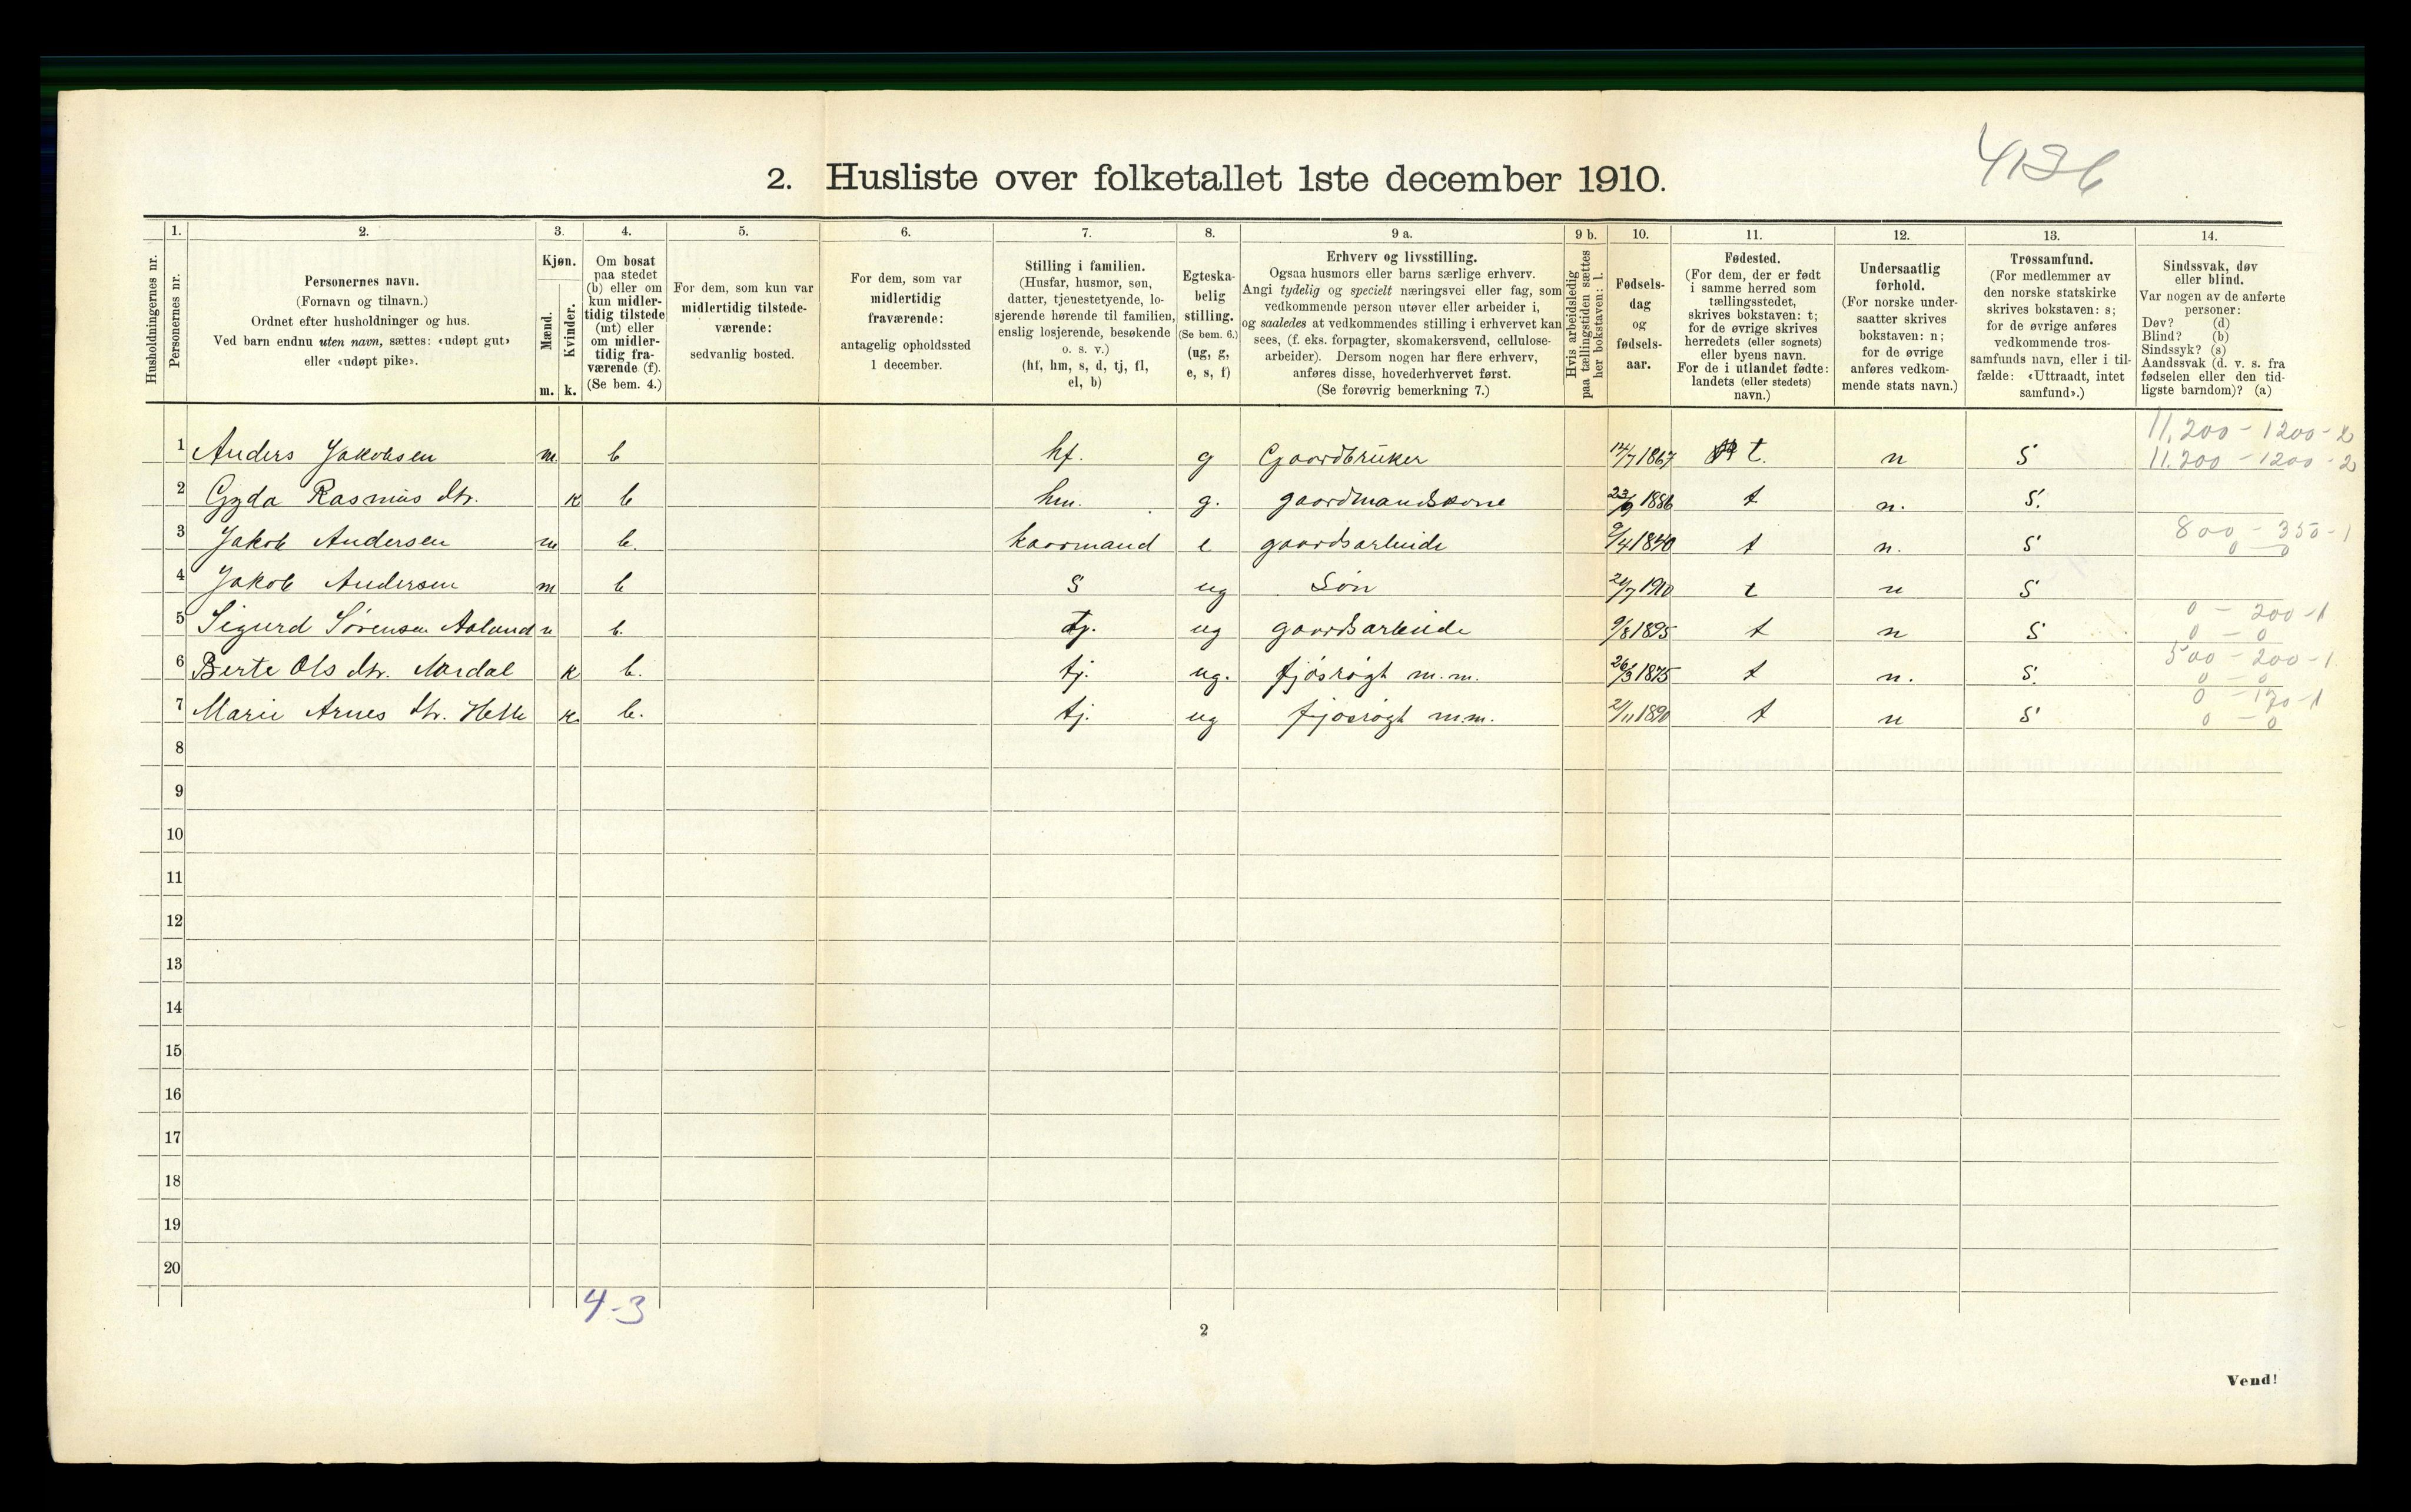 4136
2. Husliste over folketallet 1ste december 1910.
Husholdningernes nr.
1.
Personernes nr.
2.
Personernes navn.
(Fornavn og tilnavn.)
Ordnet efter husholdninger og hus.
Ved barn endnu uten navn, sættes: «udøpt gut»
eller «udøpt pike».
3.
Kjøn.
Mænd.
Kvinder.
m. k.
4.
Om bosat
paa stedet
(b) eller om
kun midler-
tidig tilstede
(mt) eller
om midler-
tidig fra-
værende (f).
(Se bem. 4.)
5.
For dem, som kun var
midlertidig tilstede-
værende:
sedvanlig bosted.
6.
For dem, som var
midlertidig
fraværende:
antagelig opholdssted
1 december.
7.
Stilling i familien.
(Husfar, husmor, søn,
datter, tjenestetyende, lo-
sjerende hørende til familien,
enslig losjerende, besøkende
o. s. v.)
(hf, hm, s, d, tj, fl,
el, b)
8.
Egteska-
belig
stilling.
(Se bem. 6.)
(ug, g,
e, s, f)
9 a.
Erhverv og livsstilling.
Ogsaa husmors eller barns særlige erhverv.
Angi tydelig og specielt næringsvei eller fag, som
vedkommende person utøver eller arbeider i,
og saaledes at vedkommendes stilling i erhvervet kan
sees, (f. eks. forpagter, skomakersvend, cellulose-
arbeider). Dersom nogen har flere erhverv,
anføres disse, hovederhvervet først.
(Se forøvrig bemerkning 7.)
9 b.
Hvis arbeidsledig
paa tællingstiden sættes
her bokstaven: l.
10.
Fødsels-
dag
og
fødsels-
aar.
11.
Fødested.
(For dem, der er født
i samme herred som
tællingsstedet,
skrives bokstaven: t;
for de øvrige skrives
herredets (eller sognets)
eller byens navn.
For de i utlandet fødte:
landets (eller stedets)
navn.)
12.
Undersaatlig
forhold.
(For norske under-
saatter skrives
bokstaven: n;
for de øvrige
anføres vedkom-
mende stats navn.)
13.
Trossamfund.
(For medlemmer av
den norske statskirke
skrives bokstaven: s;
for de øvrige anføres
vedkommende tros-
samfunds navn, eller i til-
fælde: «Uttraadt, intet
samfund».)
14.
Sindssvak, døv
eller blind.
Var nogen av de anførte
personer:
Døv? (d)
Blind? (b)
Sindssyk? (s)
Aandssvak (d. v. s. fra
fødselen eller den tid-
ligste barndom)? (a)
11.200 - 1200 - 2
1 Anders Jakobsen m b hf. g Gaardbruker 14/7 1867 t. n S 11.200 - 1200 - 2
2 Gyda Rasmus dtr. k b hm. g. gaardmandskone 1886 t n. S.
800 - 350 - 1
3 Jakob Andersen m b. kaarmand e gaardsarbeide 9/4 1840 t n. S 0 - 0
4 Jakob Andersen m b S ug Søn 1910 t n S
0 - 200 - 1
5 Sigurd Sørensen Aalund m b. tj. ug gaardsarbeide 9/8 1895 t n S 0 - 0
500 - 200 - 1
6 Berte Ols dtr. Aardal k b. tj. ug. fjøsrøgt m.m. 26/3 1875 t n. S. 0 - 0
0 - 170 - 1
7 Marie Arnes dtr. Helle k b. tj. ug fjøsrøgt m.m. 2/11 1890 t n S 0 - 0
8
9
10
11
12
13
14
15
16
17
18
19
20
4-3
2
Vend!